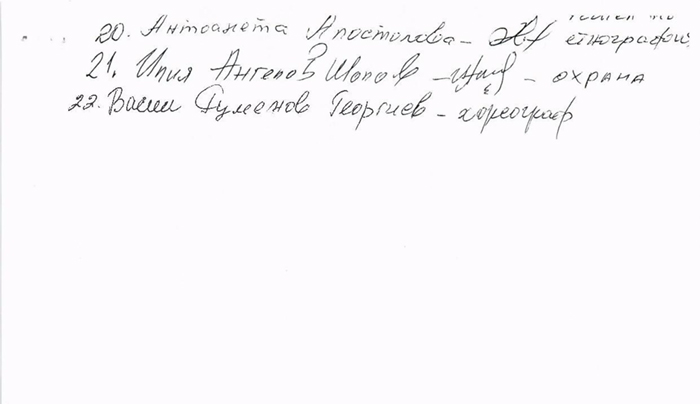 20. Антоанета Апостолова - етнография
21. Илия Ангелов Шопов - - охрана
22. Васил Гуменов Георгиев - хореограф